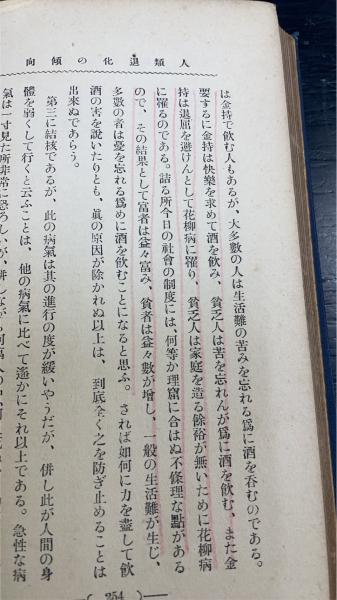 人類退化の傾向
は金持で飲む人もあるが、大多數の人は生活難の苦みを忘れる爲に酒を呑むのである。
要するに金持は快樂を求めて酒を飲み、貧乏人は苦を忘れんが爲に酒を飲む、また金
持は退屈を避けんとして花柳病に罹り、貧乏人は家庭を造る餘裕が無いために花柳病
に罹るのである。詰る所今日の社會の制度には、何等か理窟に合はぬ不條理な點がある
ので、その結果として富者は益々富み、貧者は益々數が增し、一般の生活難が生じ、
多數の者は憂を忘れる爲めに酒を飲むことになると思ふ。されば如何に力を盡して飮
酒の害を說いたりとも、眞の原因が除かれぬ以上は、到底全く之を防ぎ止めることは
出來ぬであらう。
第三に結核であるが、此の病氣は其の進行の度が緩いやうだが、併し此が人間の身
體を弱くして行くと云ふことは、他の病氣に比べて遙かにそれ以上である。急性な病
氣は一寸見た所非常に恐ろしいが、併しながら
( 254 )